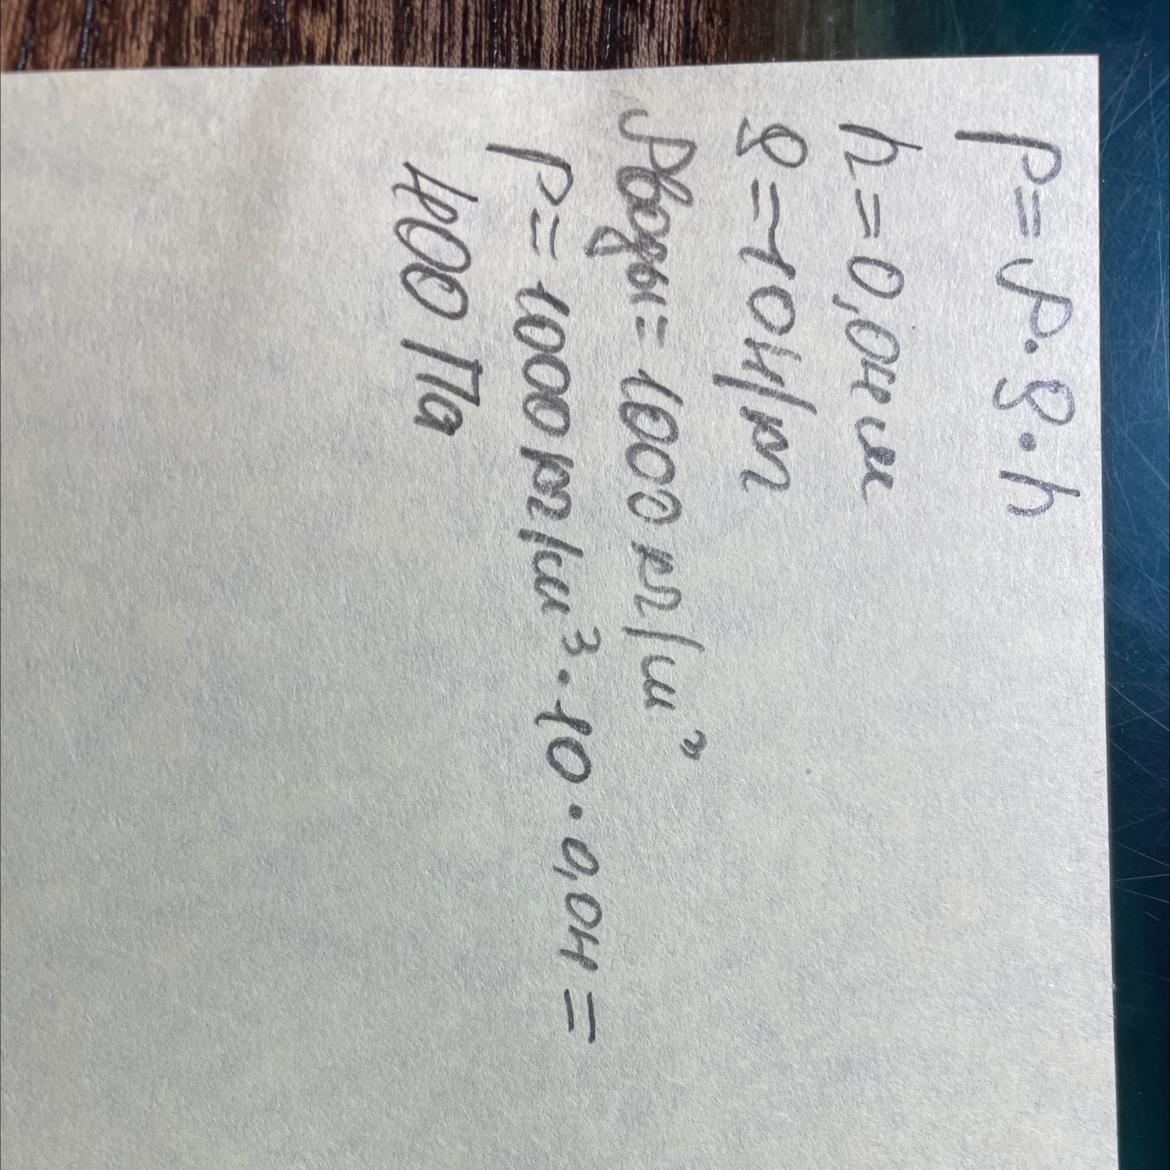 p = ρ · g · h
h = 0,04 м
g = 10 Н/кг
ρводы = 1000 кг/м³
p = 1000 кг/м³ · 10 · 0,04 =
400 Па